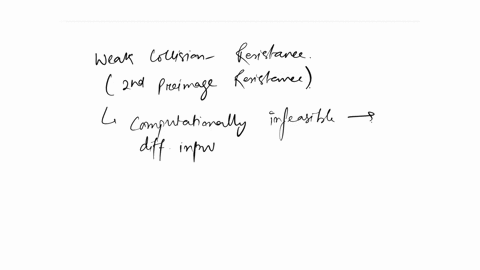 Weak Collision- Resistance.
(2nd Preimage Resistance)
↳ Computationally infeasible →
diff. inpu